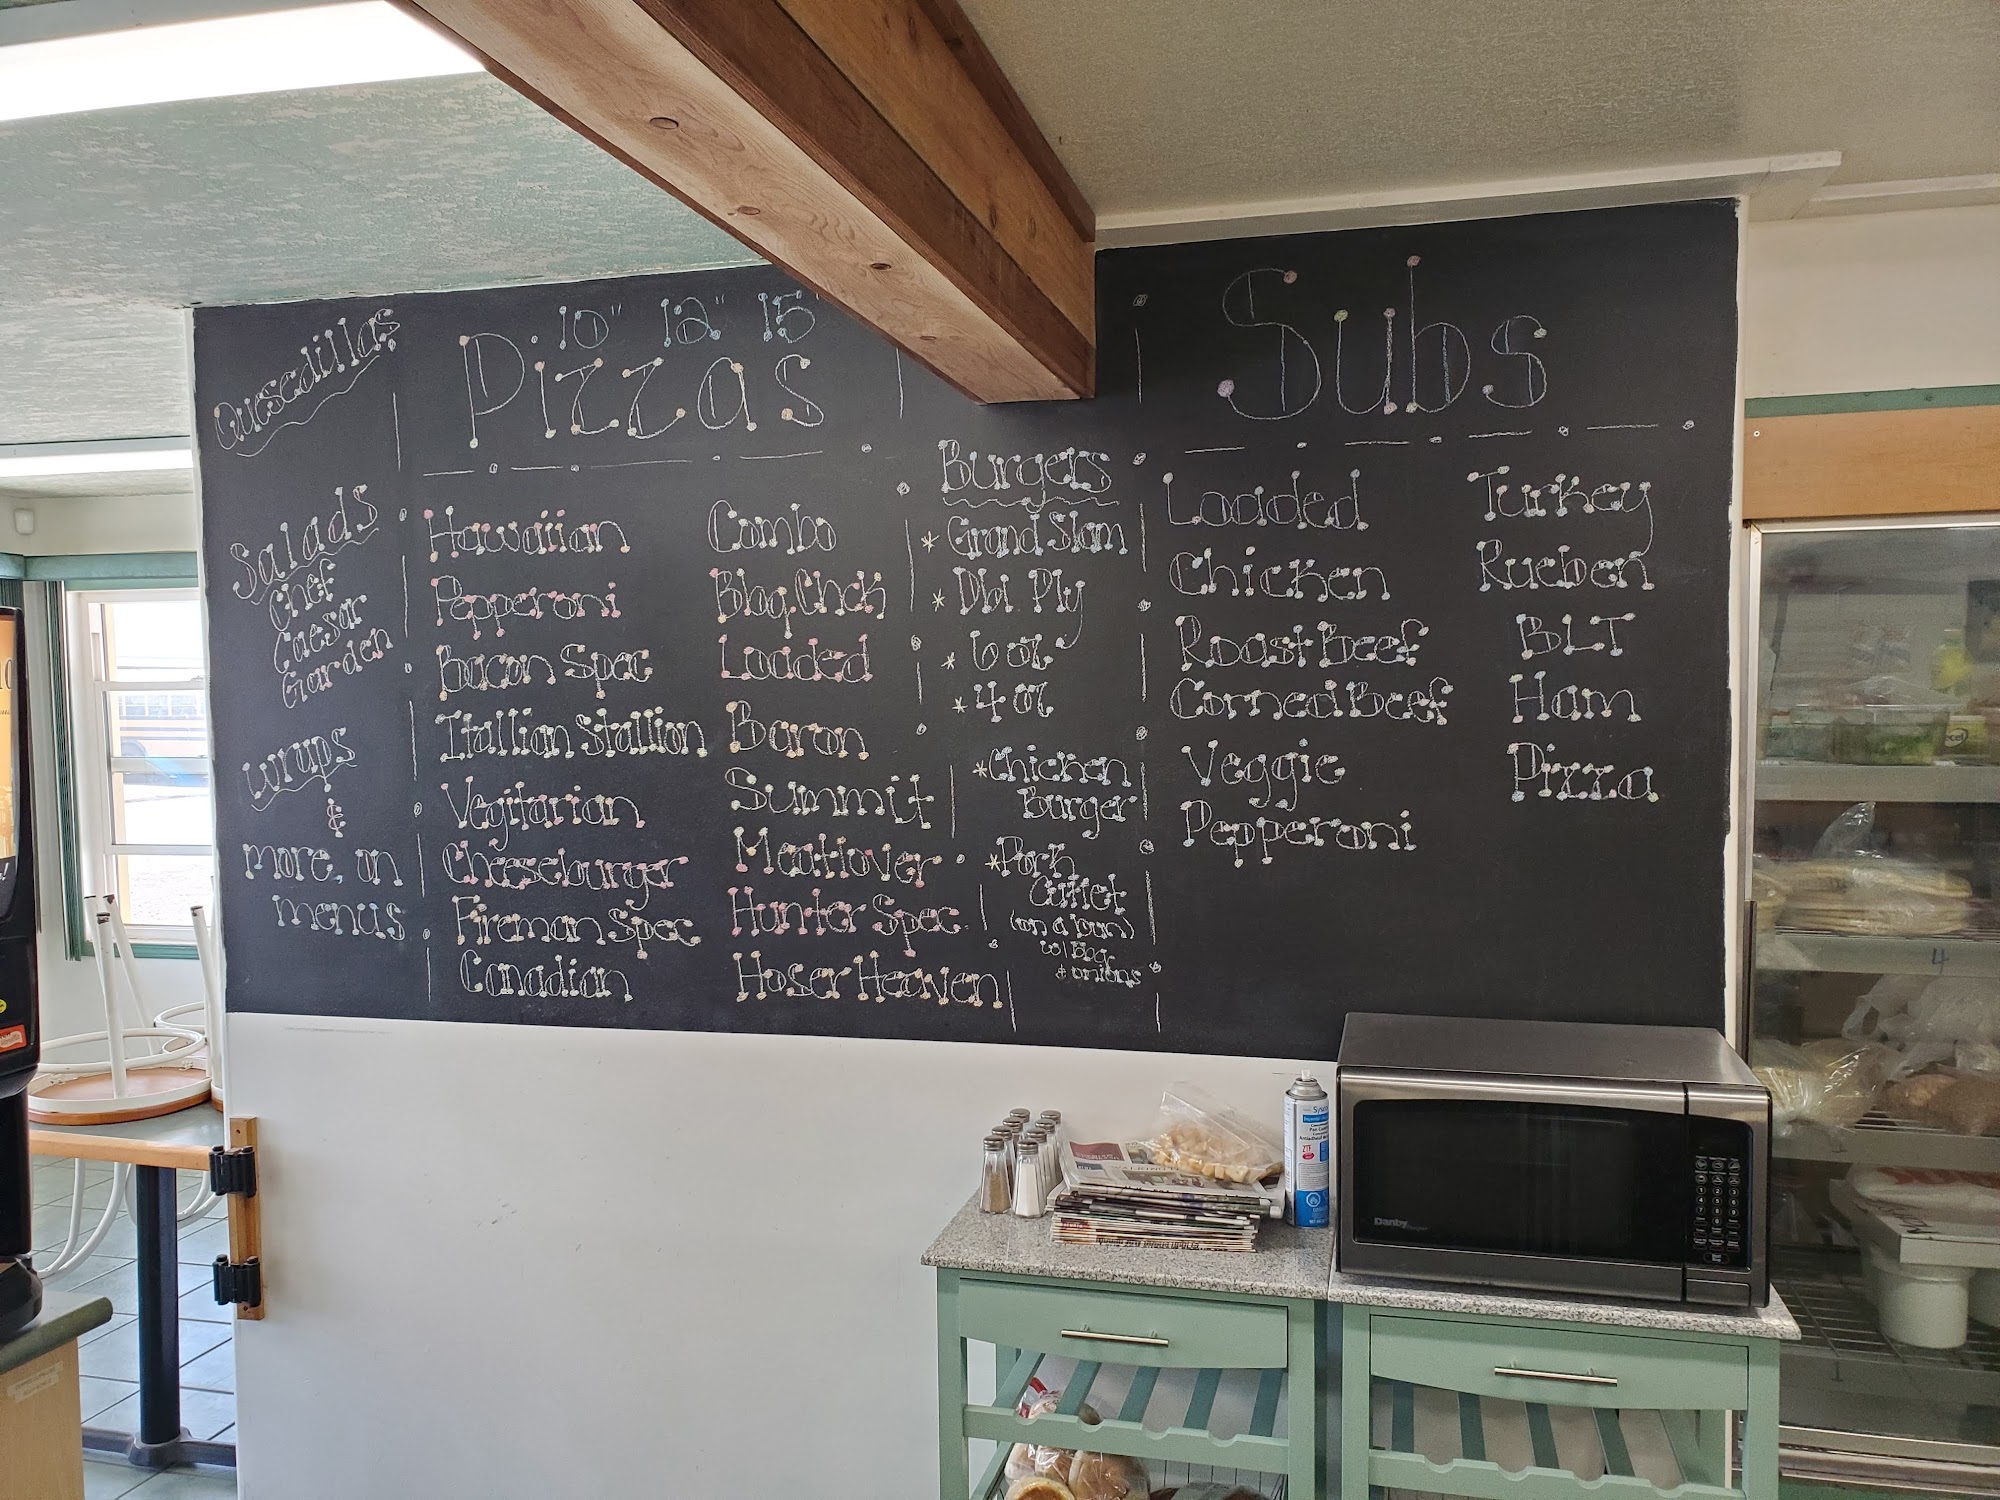 Quesadillas
Salads
Chef
Caesar
Garden
Wraps
&
more on
menus
10" 12" 15"
Pizzas
Hawaiian
Pepperoni
Bacon Spec
Itallian Stallion
Vegitarian
Cheeseburger
Fireman Spec
Canadian
Combo
Bbq. Chck
Loaded
Baron
Summit
Meatlover
Hunter Spec.
Hoser Heaven
Burgers
* Grand Slam
* Dbl. Ply
* 6 oz
* 4 oz
* Chicken
Burger
* Pork
Cutlet
(on a bun)
w/ Bbq
& onions
Subs
Loaded
Chicken
Roast Beef
Corned Beef
Veggie
Pepperoni
Turkey
Rueben
BLT
Ham
Pizza
Danby
4